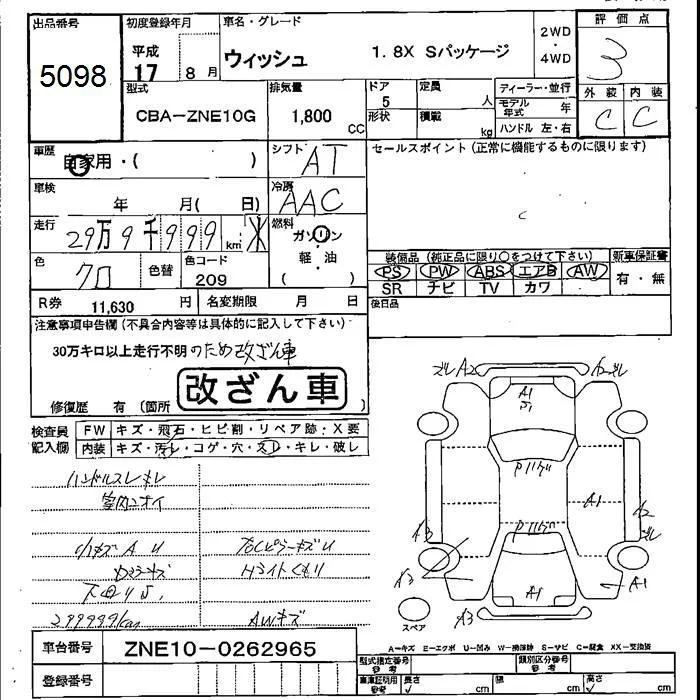 出品番号
5098
初度登録年月
平成
17 8月
車名・グレード
ウィッシュ 1.8X Sパッケージ
2WD
・
4WD
評価点
3
外装 内装
C C
型式
CBA-ZNE10G
排気量
1,800 CC
ドア
5
形状
定員
人
積載
kg
ディーラー・並行
モデル年式 年
ハンドル 左・右
車歴
自家用・( )
シフト
AT
車検
年 月( 日)
冷房
AAC
走行
29万9千999 km
燃料
ガソリン
軽・油
( )
色
クロ
色替
色コード
209
R券 11,630 円
名変期限 月 日
セールスポイント(正常に機能するものに限ります)
装備品(純正品に限り○をつけて下さい)
PS PW ABS エアB AW
SR ナビ TV カワ
新車保証書
有・無
後日品
注意事項申告欄(不具合内容等は具体的に記入して下さい)
30万キロ以上走行不明のため改ざん車
改ざん車
修復歴 有(箇所 )
検査員記入欄
FW キズ・飛石・ヒビ割・リペア跡・X要
内装 キズ・汚レ・コゲ・穴・スレ・キレ・破レ
ハンドルスレキレ
室内ニオイ
小キズ A U
左右CピラーキズU
Hライトくもり
299999km
AWキズ
A2
A1
P
P
A1
A2
A3
A3
A1
A1
A3
スペア
A-キズ E-エクボ U-凹み W-補修跡 S-サビ C-腐食 XX-交換済
車台番号 ZNE10-0262965
登録番号
型式指定番号
参考
類別区分番号
参考
車庫証明用
参考
長さ cm
幅 cm
高さ cm